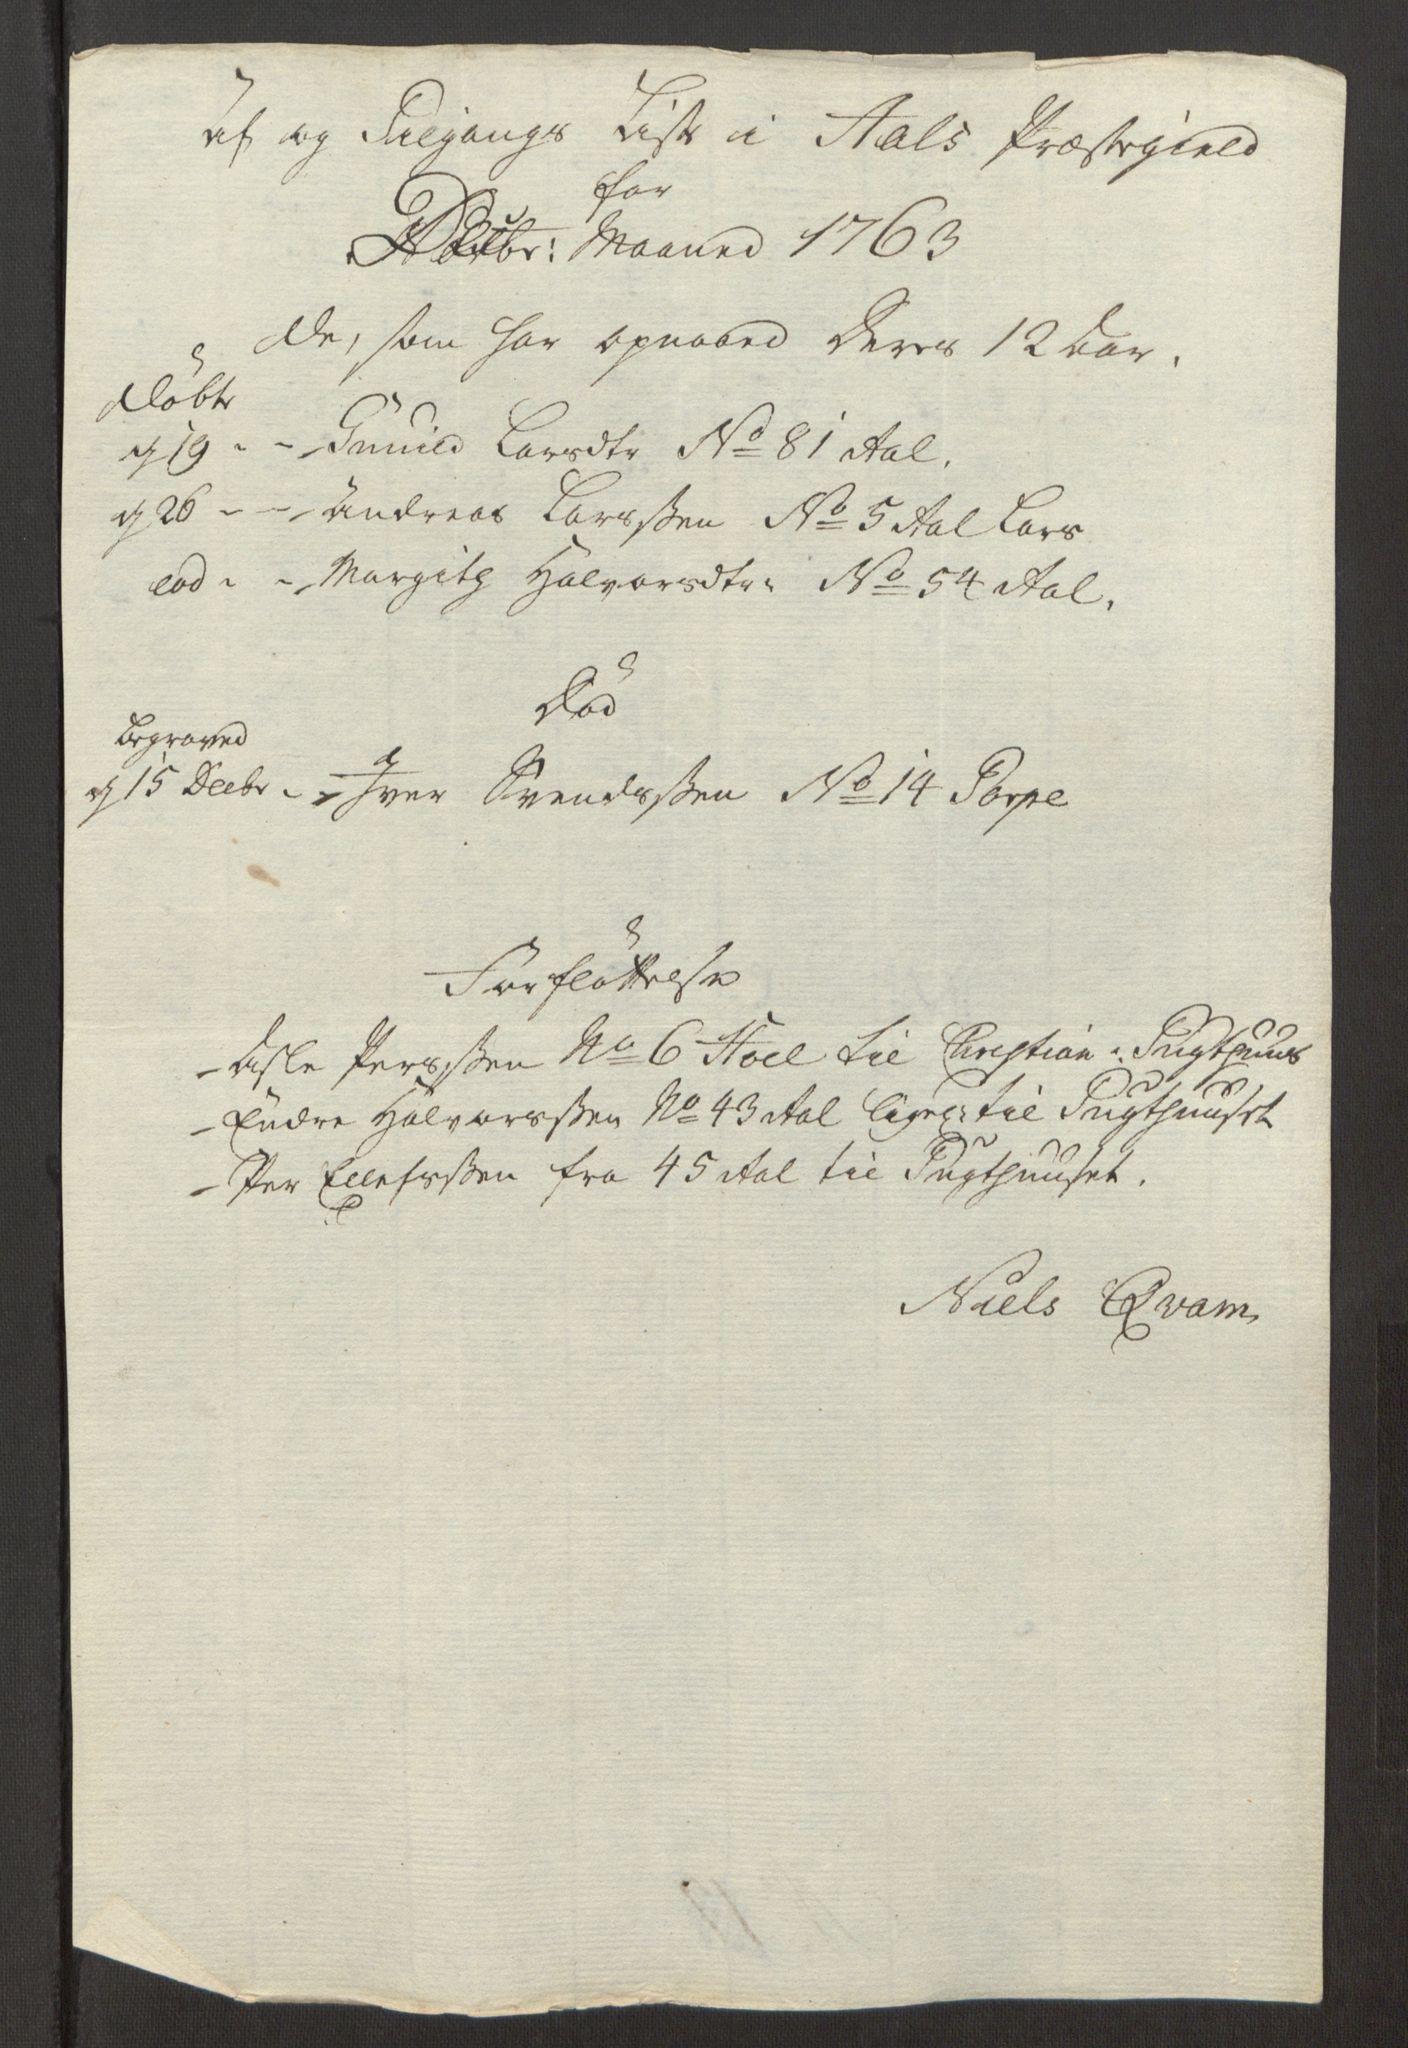 Af og Tilgangs Liste i Aals Præstegield
for
Decbr: Maaned 1763
De, som har opnaaed Deres 12 Aar.
Døbte
d 19 - - Gunild Larsdtr No 81 Aal.
d 26 - - Andreas Larssen No 5 Aal Lars
eod - - Margith Halvorsdtr: No 54 Aal.
Død
begraved
d 15 Decbr - - Iver Svendssen No 14 Torpe
Forfløttelse
- Asle Perssen No 6 Hoel til Christian: Tugthuus
- Endre Halvorssen No 43 Aal til Tugthuuset
- Per Ellefssen fra 45 Aal til Tugthuuset.
Niels Qvam